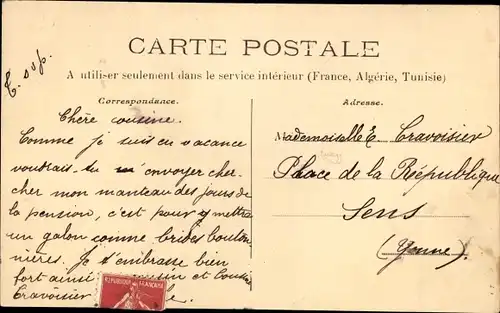 T. s.v.p.
CARTE POSTALE
A utiliser seulement dans le service intérieur (France, Algérie, Tunisie)
Correspondance.
Adresse.
Chère cousine.
Comme je suis en vacance
voudrais-tu m'envoyer cher-
cher mon manteau des jours de
la pension, c'est pour y mettre
un galon comme brides bouton-
nières. Je t'embrasse bien
fort ainsi cousin et cousine
Cravoisier
Mademoiselle E. Cravoisier
Place de la République
Sens
(Yonne)
REPUBLIQUE FRANÇAISE